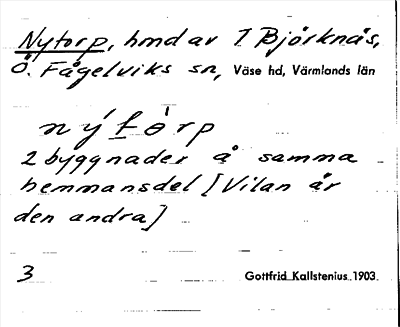 Nytorp, hmd av 1 Björknäs,
Ö. Fågelviks sn, Väse hd, Värmlands län
nýt̲òrp
2 byggnader å samma
hemmansdel [Vilan är
den andra]
3 Gottfrid Kallstenius 1903